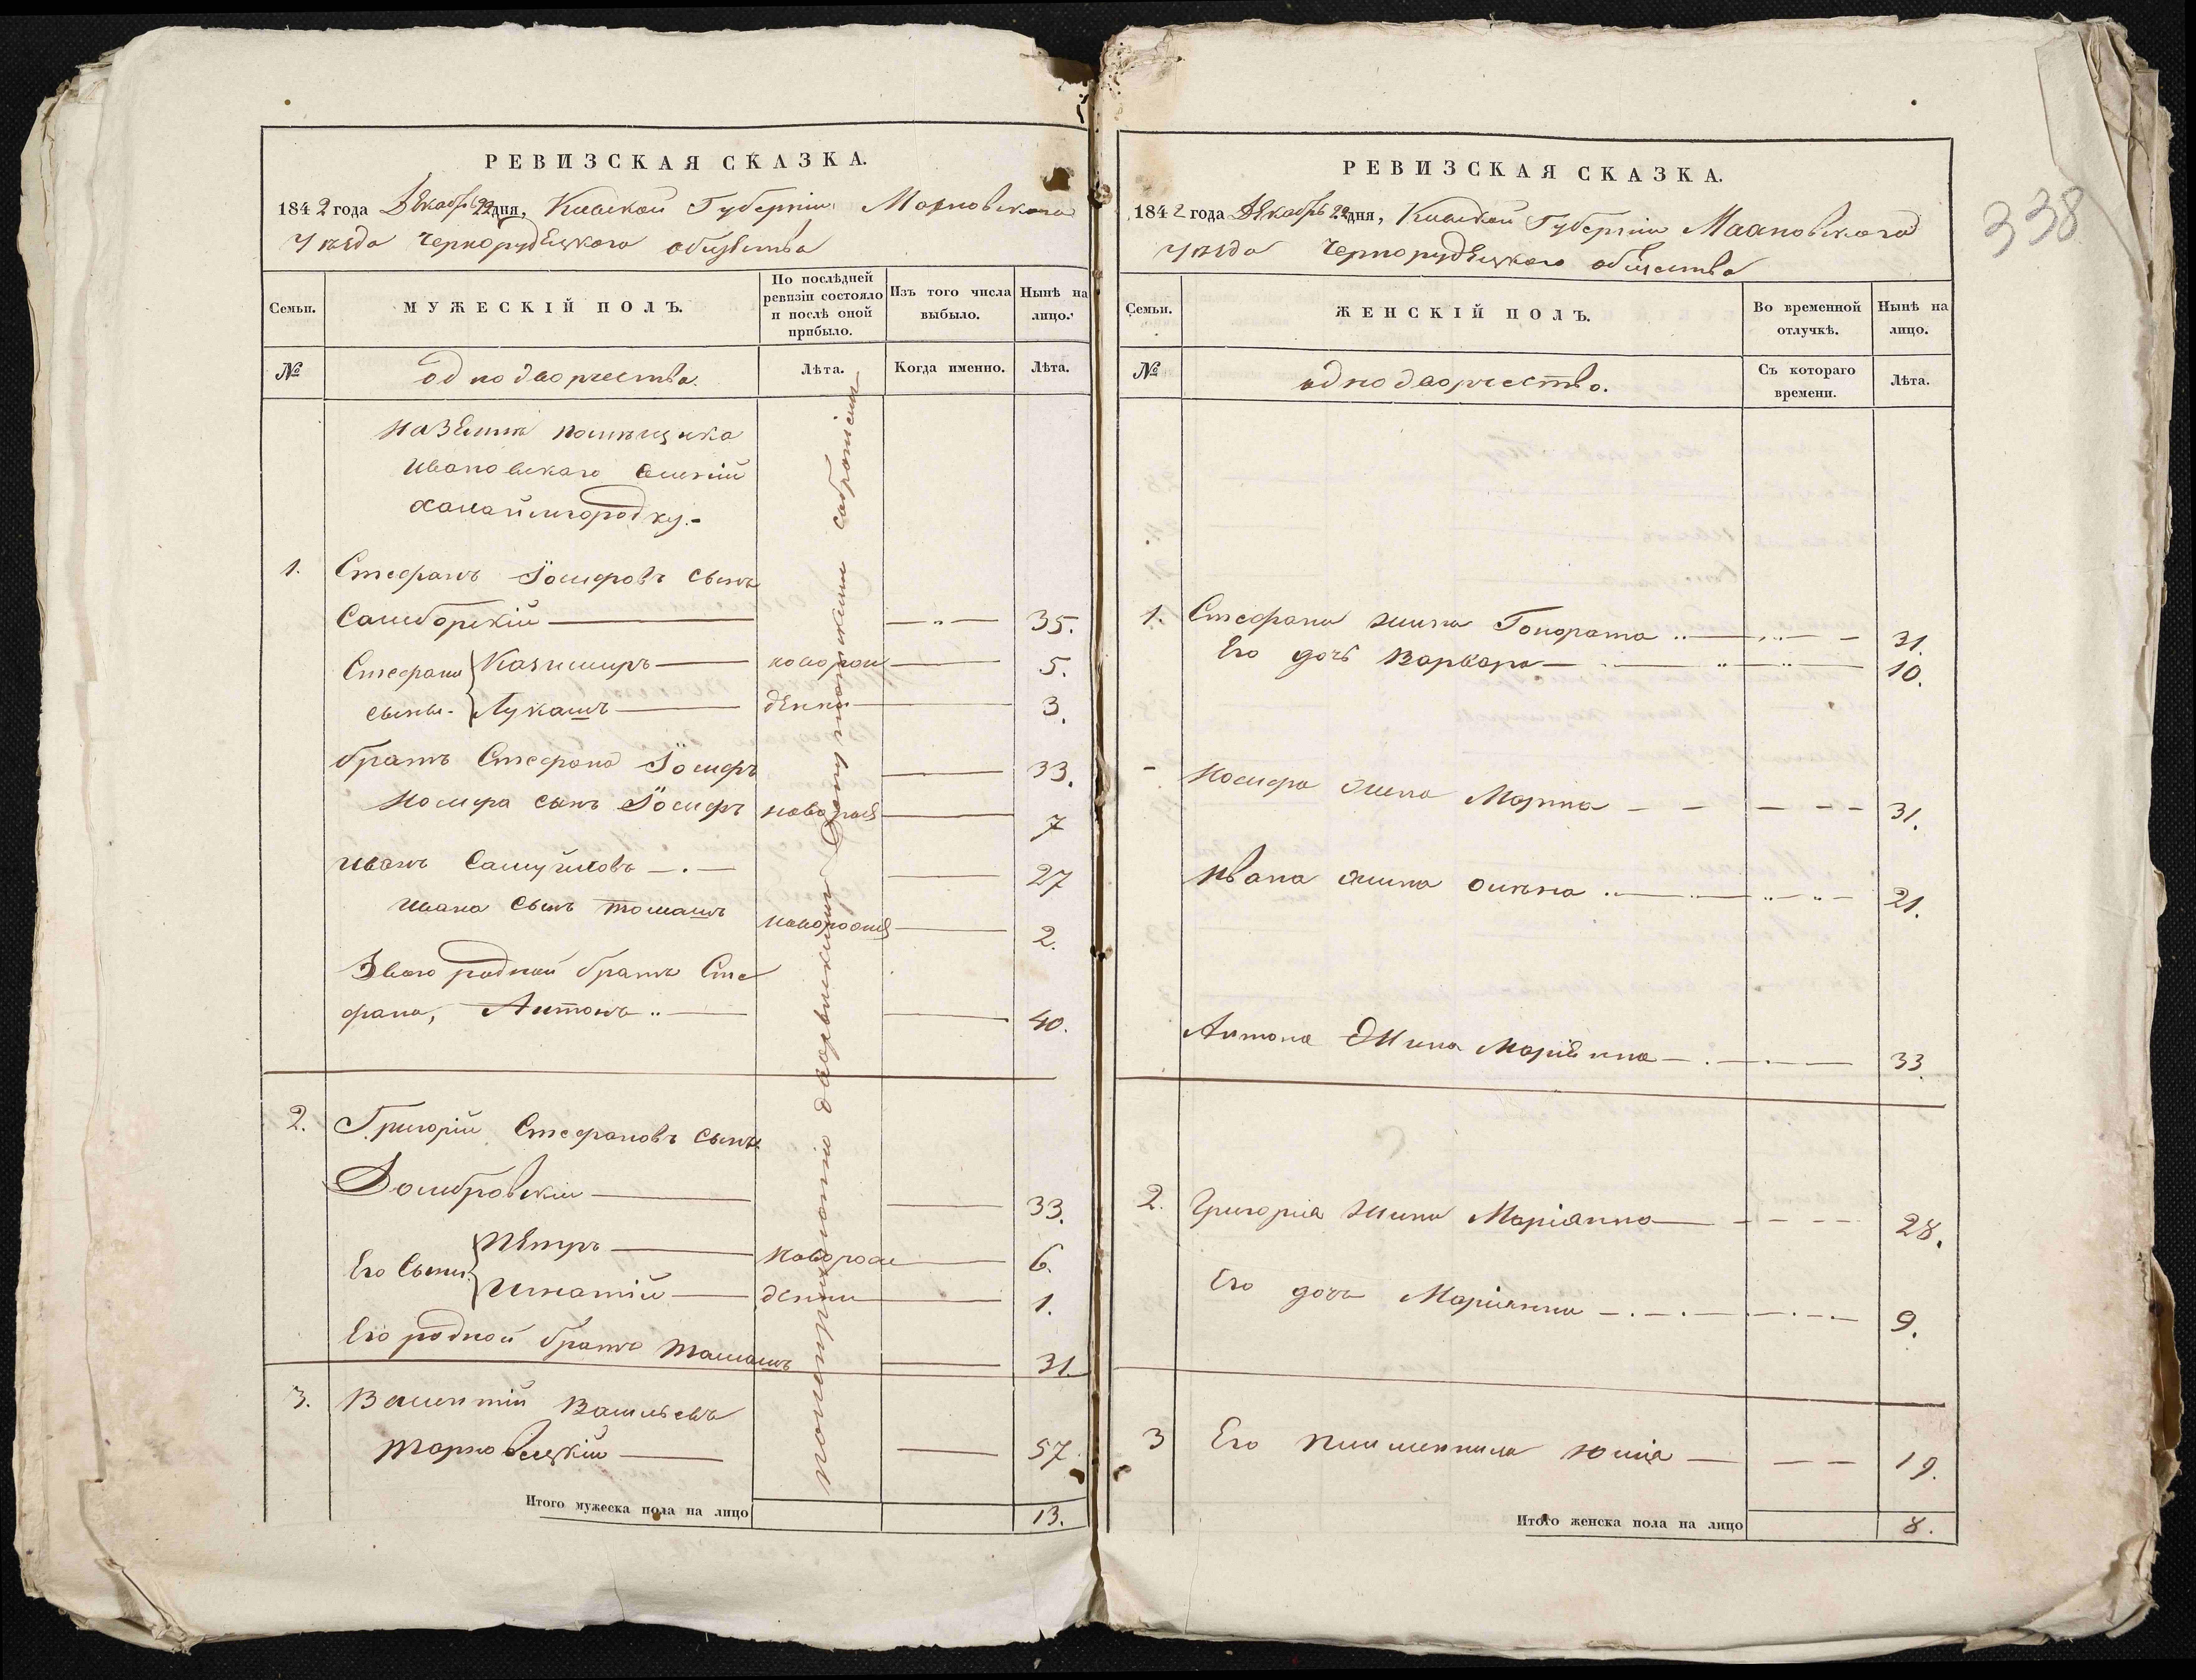 РЕВИЗСКАЯ СКАЗКА.
1842 года Декабрь 22 дня, Киевской Губерніи Махновского
уезда Чернорудецкого общества
Семьи.
МУЖЕСКІЙ ПОЛЪ.
По послѣдней ревизіи состояло и послѣ оной прибыло.
Изъ того числа выбыло.
Нынѣ на лицо.
№
однодворчества.
Лѣта.
Когда именно.
Лѣта.
на земли помещика
Ивановскаго
1. Стефанъ Іосифовъ сынъ
Самборскій 35.
Стефана Казимиръ новорож 5.
сыны Лукашъ денни 3.
братъ Стефана Іосифъ 33.
Иосифа сынъ Іосифъ новорож 7
Иванъ Самуйловъ 27
Ивана сынъ Томашъ новорож 2.
Двоюродной братъ Сте
фана, Антонъ 40.
2. Григорій Стефановъ сынъ
Домбровскій 33.
Его Сыни Петръ новорож 6.
Игнатій денни 1.
Его родной братъ Томашъ 31.
3. Валентій Васильевъ
Тарновецкій 57
Итого мужеска пола на лицо 13.
РЕВИЗСКАЯ СКАЗКА.
1842 года Декабрь 22 дня, Киевской Губерніи Махновского
уезда Чернорудецкого общества
338
Семьи.
ЖЕНСКІЙ ПОЛЪ.
Во временной отлучкѣ.
Нынѣ на лицо.
№
однодворчество.
Съ котораго времени.
Лѣта.
1. Стефана жина Гонората 31.
Его дочь Варвара 10.
Иосифа жина Марина 31.
Ивана жина 21.
Антона Жина Маріянна 33.
2. Григорія жина Маріянна 28.
Его дочь Маріянна 9.
3 Его племенница Юлія 19.
Итого женска пола на лицо 8.